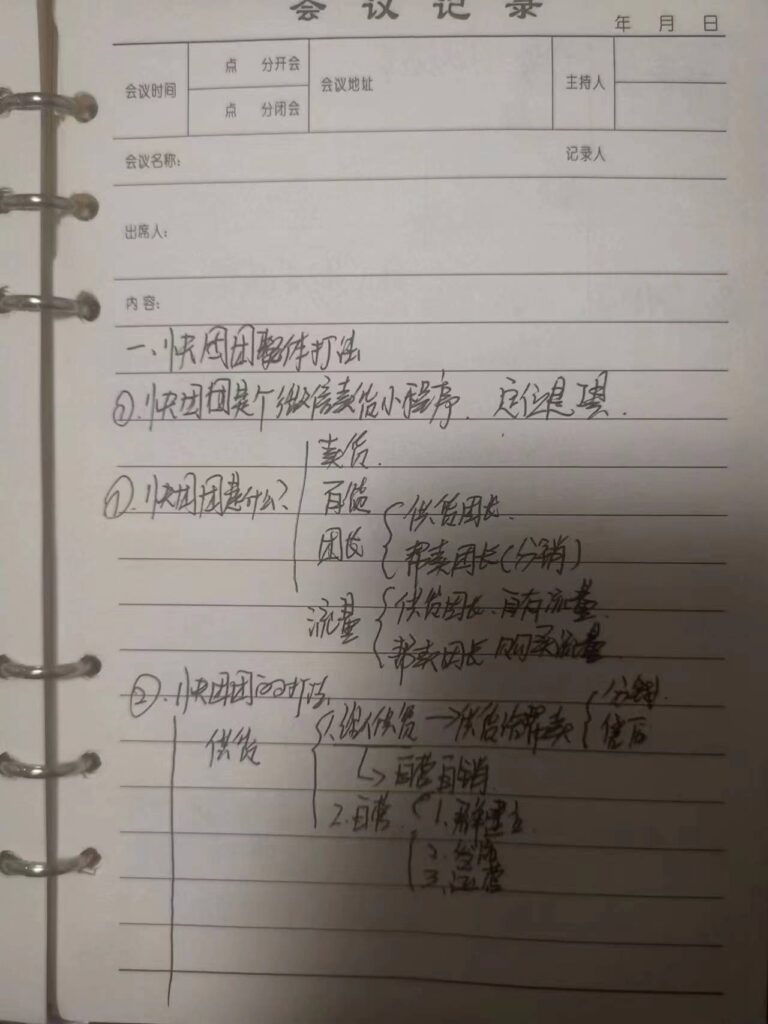 会议记录
年 月 日
会议时间 点 分开会 会议地址 主持人
点 分闭会
会议名称: 记录人
出席人:
内容:
一、快团团整体打法
快团团是个微信卖货小程序. 定位是
①.快团团是什么?
卖货.
团长
供货团长.
帮卖团长(分销)
流量
供货团长.自有流量
帮卖团长
②.快团团的打法
供货
1. 供货→供货给帮卖
分销.
售后
↳自营自销
2.自营
1.
2.
3.运营